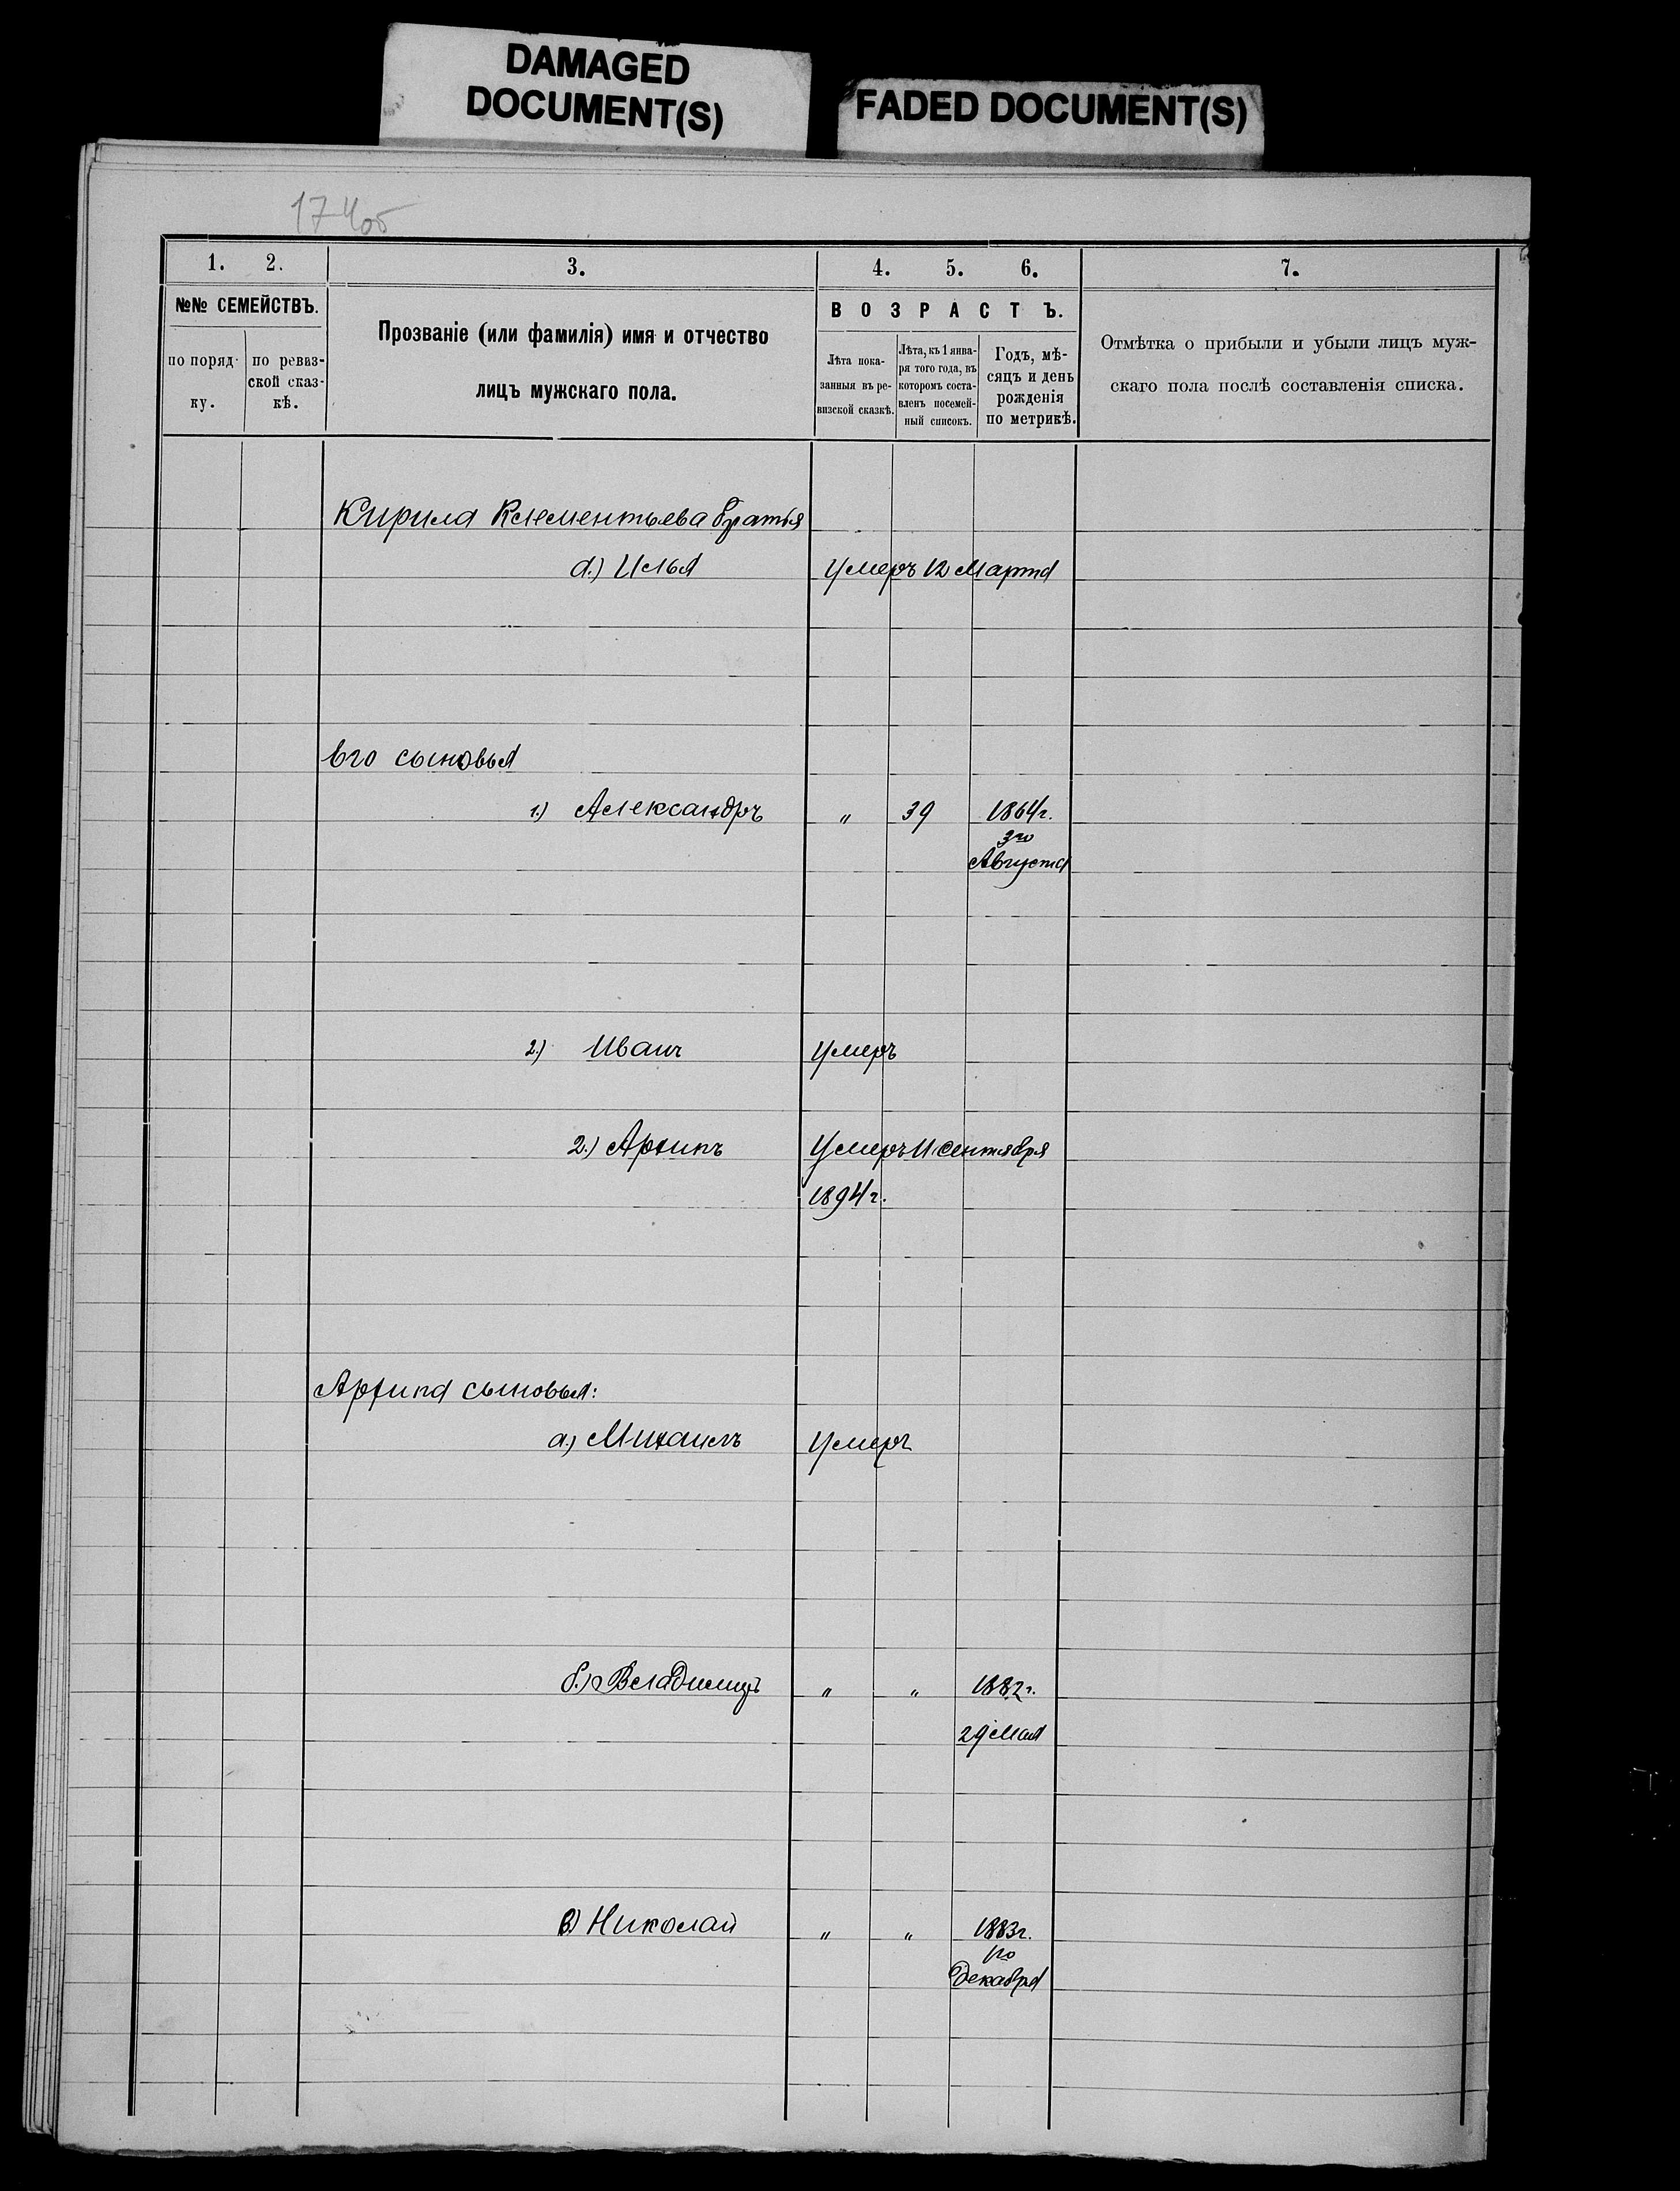 DAMAGED
DOCUMENT(S)
FADED DOCUMENT(S)
174об
1. 2. 3. 4. 5. 6. 7.
№№ СЕМЕЙСТВЪ.
по поряд-
ку.
по ревиз-
ской сказ-
кѣ.
Прозваніе (или фамилія) имя и отчество
лицъ мужскаго пола.
ВОЗРАСТЪ.
Лѣта пока-
занныя въ ре-
визской сказкѣ.
Лѣта, къ 1 янва-
ря того года, въ
которомъ соста-
вленъ посемей-
ный списокъ.
Годъ, мѣ-
сяцъ и день
рожденія
по метрикѣ.
Отмѣтка о прибыли и убыли лицъ муж-
скаго пола послѣ составленія списка.
Кирила Клементьева братья
а.) Илья умеръ 12 Марта
Его сыновья
1.) Александръ " 39 1864г.
3го
Августа
2.) Иванъ умеръ
2.) Архипъ Умеръ 11 Сентября
1894г.
Архипа сыновья:
а.) Михаилъ умеръ
б.) Владимиръ " " 1882г.
29 Мая
в) Николай " " 1883г.
1го
Декабря